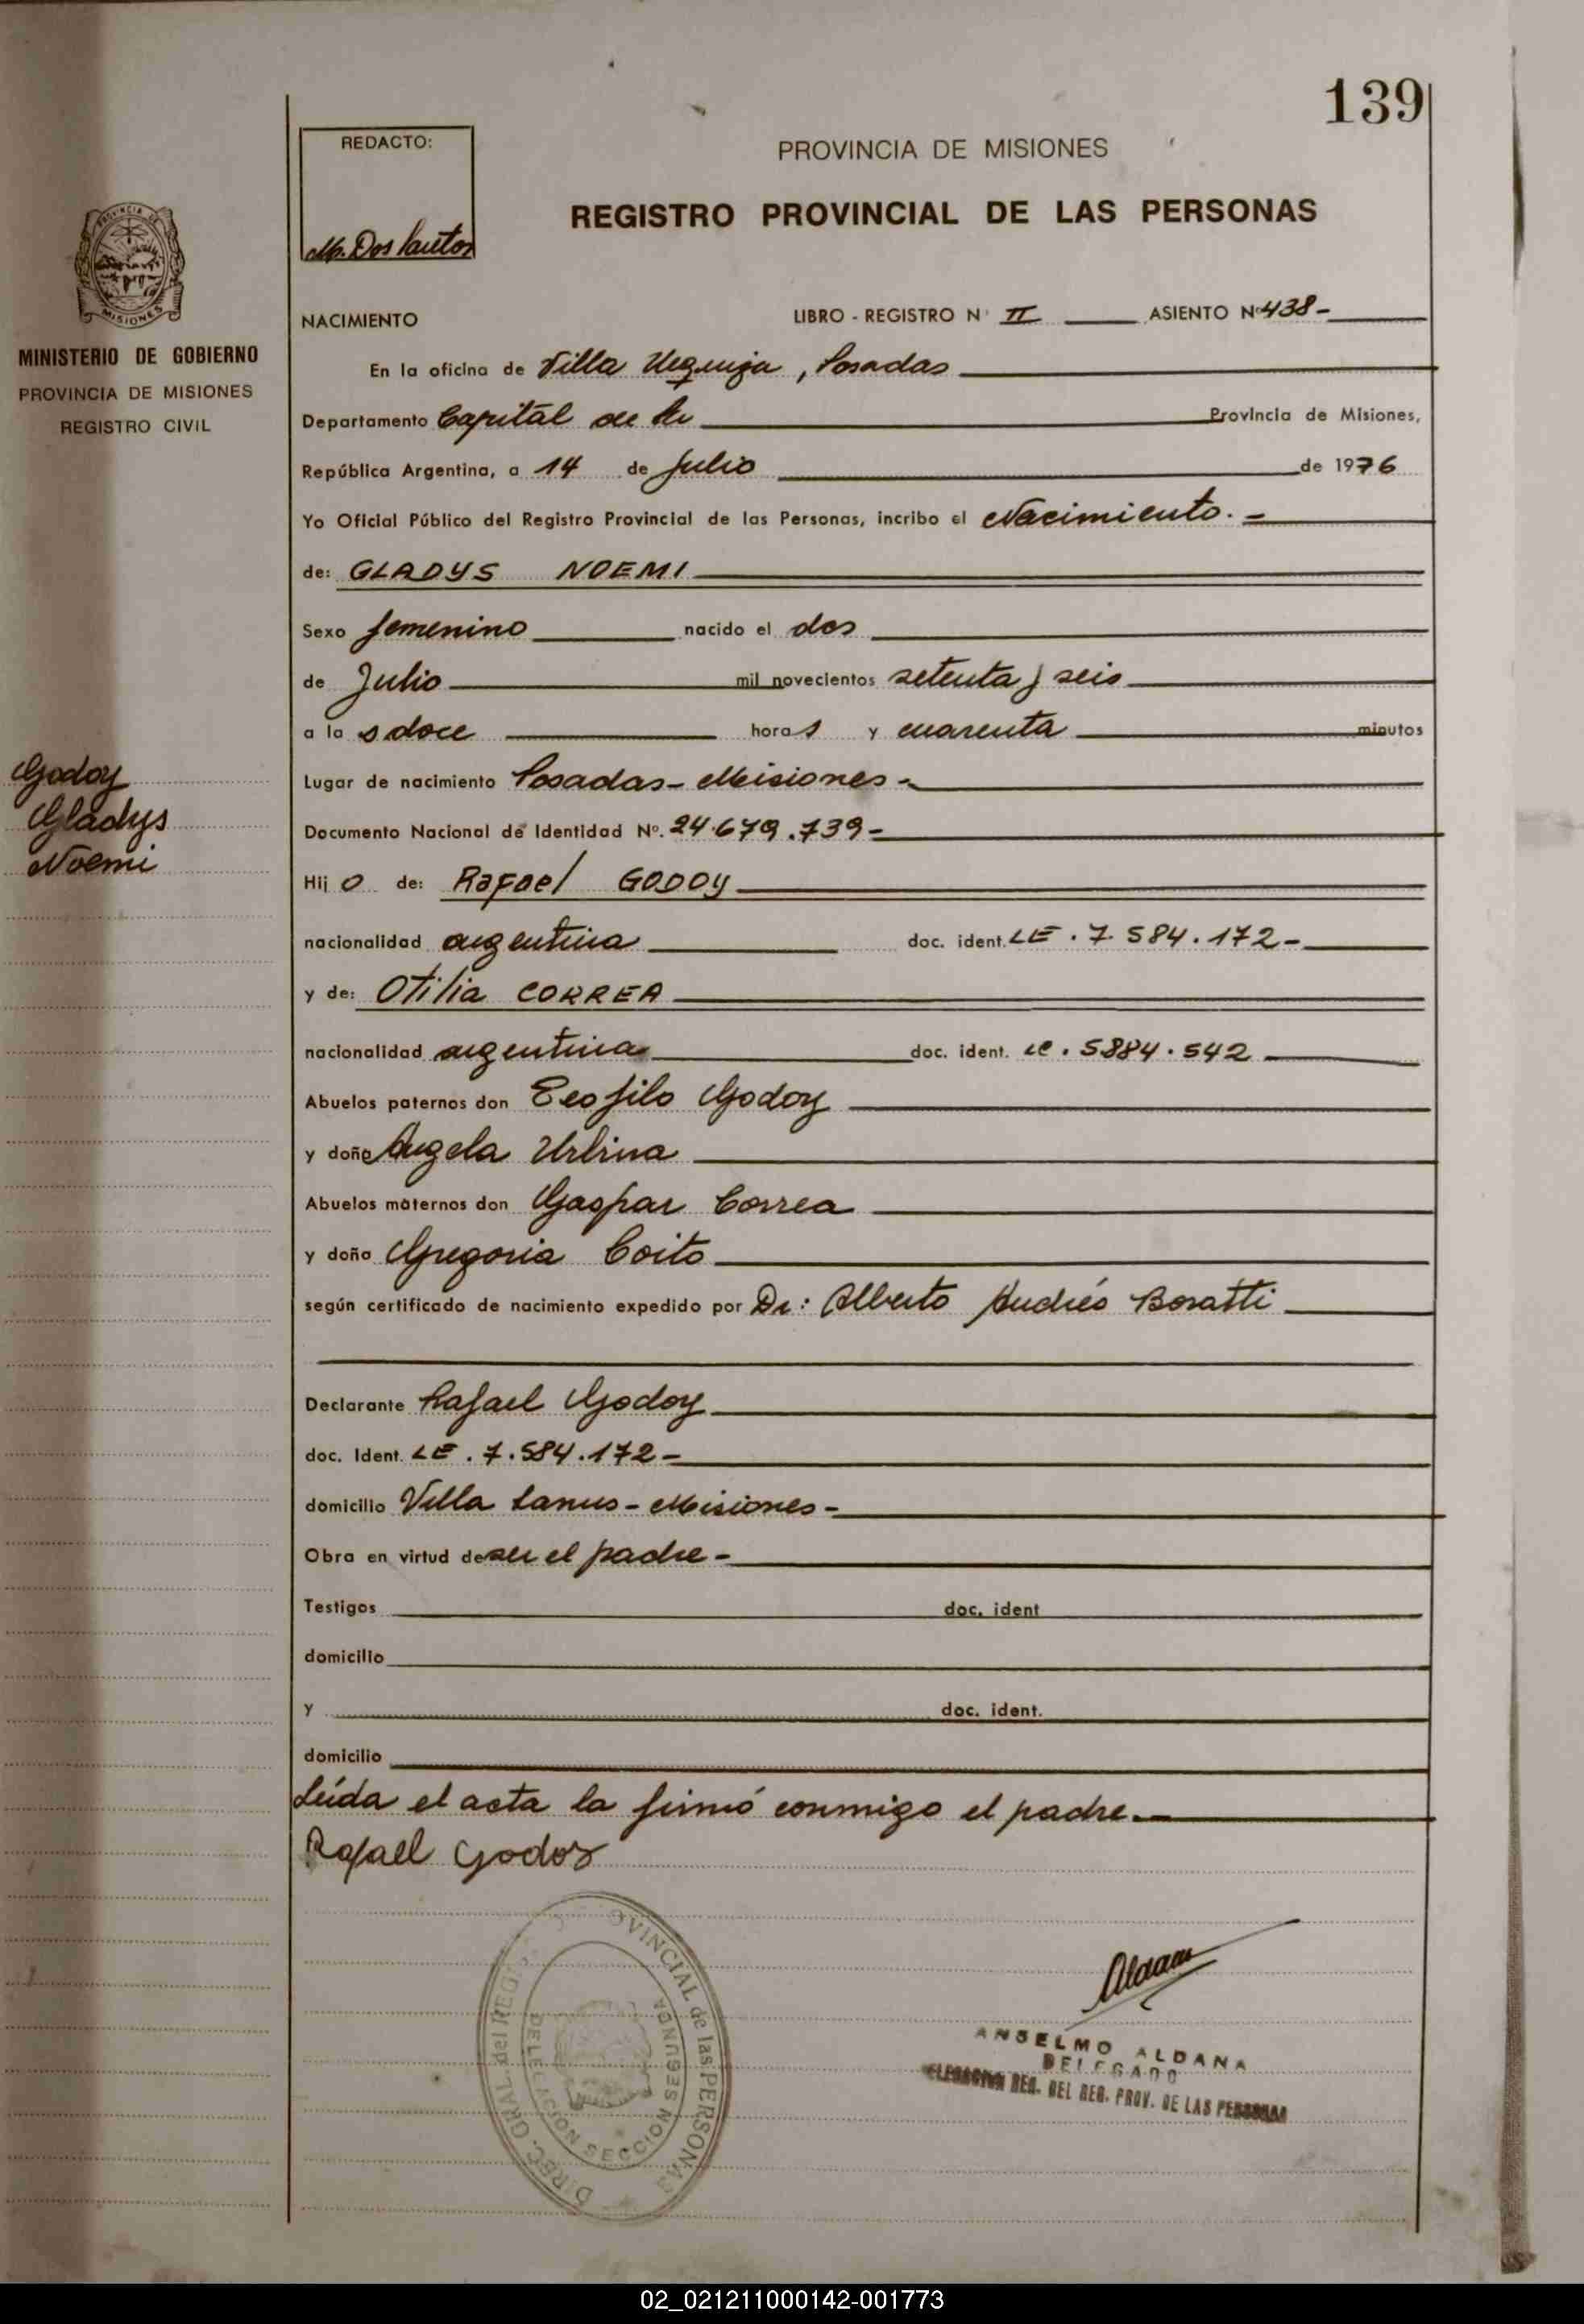 139
REDACTO:
M. Dos Santos
PROVINCIA DE MISIONES
REGISTRO PROVINCIAL DE LAS PERSONAS
PROVINCIA DE
MISIONES
MINISTERIO DE GOBIERNO
PROVINCIA DE MISIONES
REGISTRO CIVIL
NACIMIENTO LIBRO - REGISTRO Nº II ASIENTO Nº 438-
En la oficina de Villa Urquiza, Posadas
Departamento Capital de la Provincia de Misiones,
República Argentina, a 14 de Julio de 1976
Yo Oficial Público del Registro Provincial de las Personas, incribo el Nacimiento.-
de: GLADYS NOEMI
Sexo femenino nacido el dos
de Julio mil novecientos setenta y seis
a la s doce hora s y cuarenta minutos
Godoy
Gladys
Noemi
Lugar de nacimiento Posadas - Misiones -
Documento Nacional de Identidad Nº. 24.679.739-
Hij o de: Rafael GODOY
nacionalidad argentina doc. ident. LE. 7.584.172-
y de: Otilia CORREA
nacionalidad argentina doc. ident. LC. 5884.542
Abuelos paternos don Teofilo Godoy
y doña Angela Urbina
Abuelos maternos don Gaspar Correa
y doña Gregoria Coito
según certificado de nacimiento expedido por Dr: Alberto Andrés Boratti
Declarante Rafael Godoy
doc. Ident. LE. 7.584.172-
domicilio Villa Lanus - Misiones -
Obra en virtud de ser el padre -
Testigos doc. ident
domicilio
y doc. ident.
domicilio
Leída el acta la firmó conmigo el padre.-
Rafael Godoy
DIREC. GRAL del REG OVINCIAL de las PERSONAS
DELEGACION SECCION SEGUNDA
Aldana
ANSELMO ALDANA
DELEGADO
DELEGACION REG. DEL REG. PROV. DE LAS PERSONAS
02_021211000142-001773